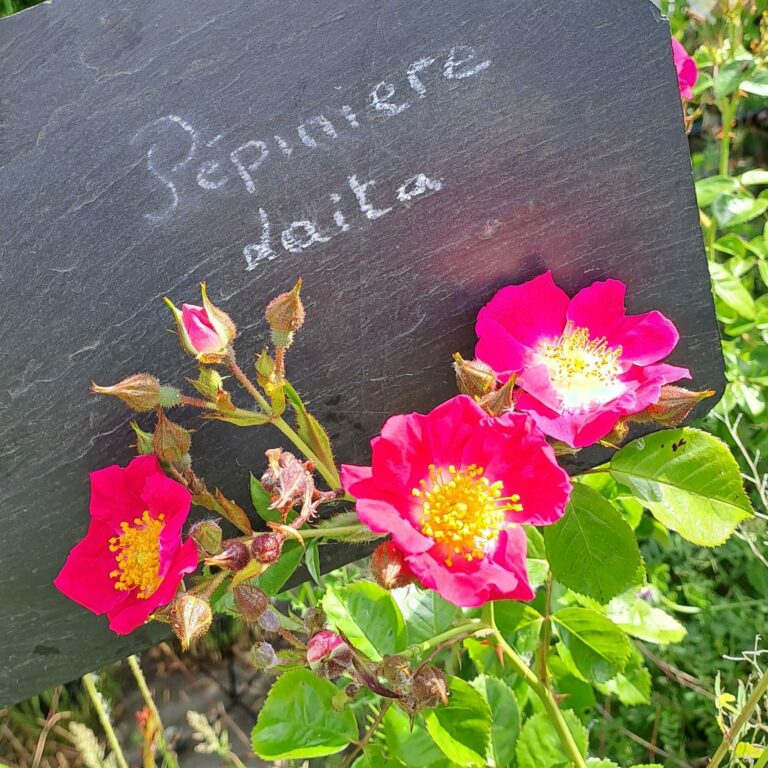 Pépiniere
daita